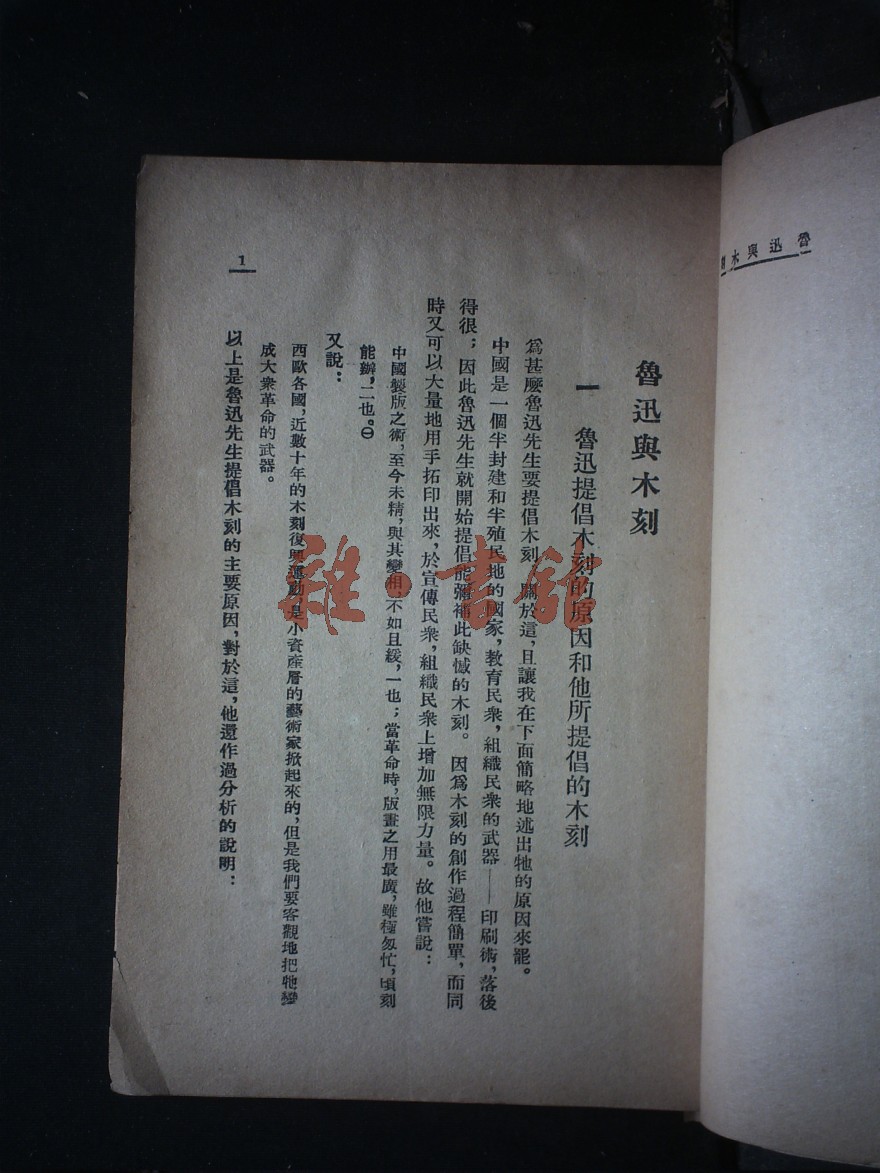 魯迅與木刻
魯迅與木刻
一　魯迅提倡木刻的原因和他所提倡的木刻
爲甚麼魯迅先生要提倡木刻？關於這，且讓我在下面簡略地述出牠的原因來罷。
中國是一個半封建和半殖民地的國家，教育民衆，組織民衆的武器——印刷術，落後
得很；因此魯迅先生就開始提倡能彌補此缺憾的木刻。因爲木刻的創作過程簡單，而同
時又可以大量地用手拓印出來，於宣傳民衆，組織民衆上增加無限力量。故他嘗說：
中國製版之術，至今未精，與其變相，不如且緩，一也；當革命時，版畫之用最廣，雖極匆忙，頃刻
能辦，二也。㊀
又說：
西歐各國，近數十年的木刻復興運動，是小資產層的藝術家掀起來的，但是我們要客觀地把牠變
成大衆革命的武器。
以上是魯迅先生提倡木刻的主要原因，對於這，他還作過分析的說明：
1
雜·書館